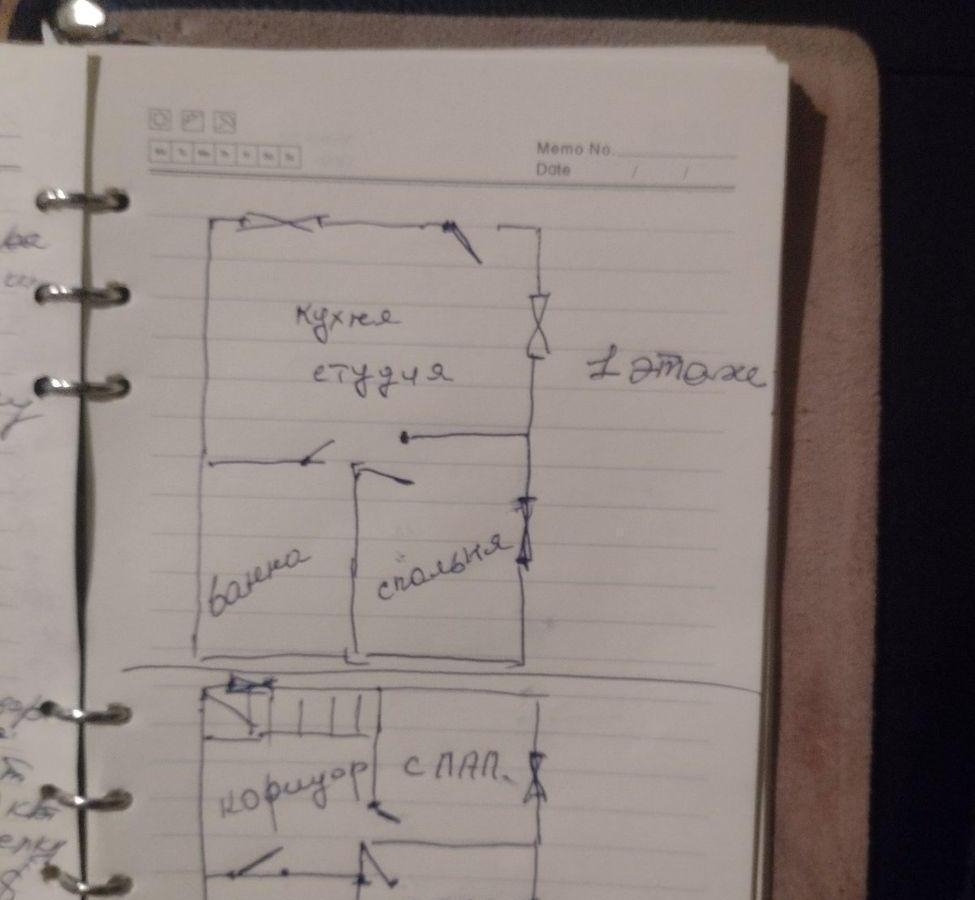 Memo No.
Date / /
кухня
студия
1 этаж
ванна
спальня
коридор
СПАЛ.